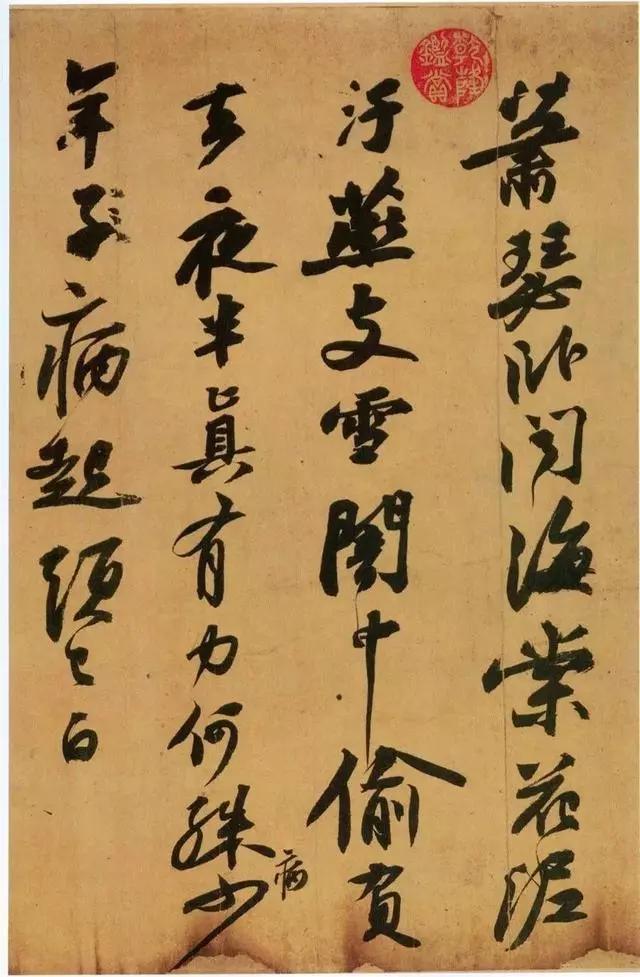 乾隆鑑賞
蕭瑟卧聞海棠花泥
汙燕支雪闇中偷負
去夜半眞有力何殊少
病
年子病起頭已白